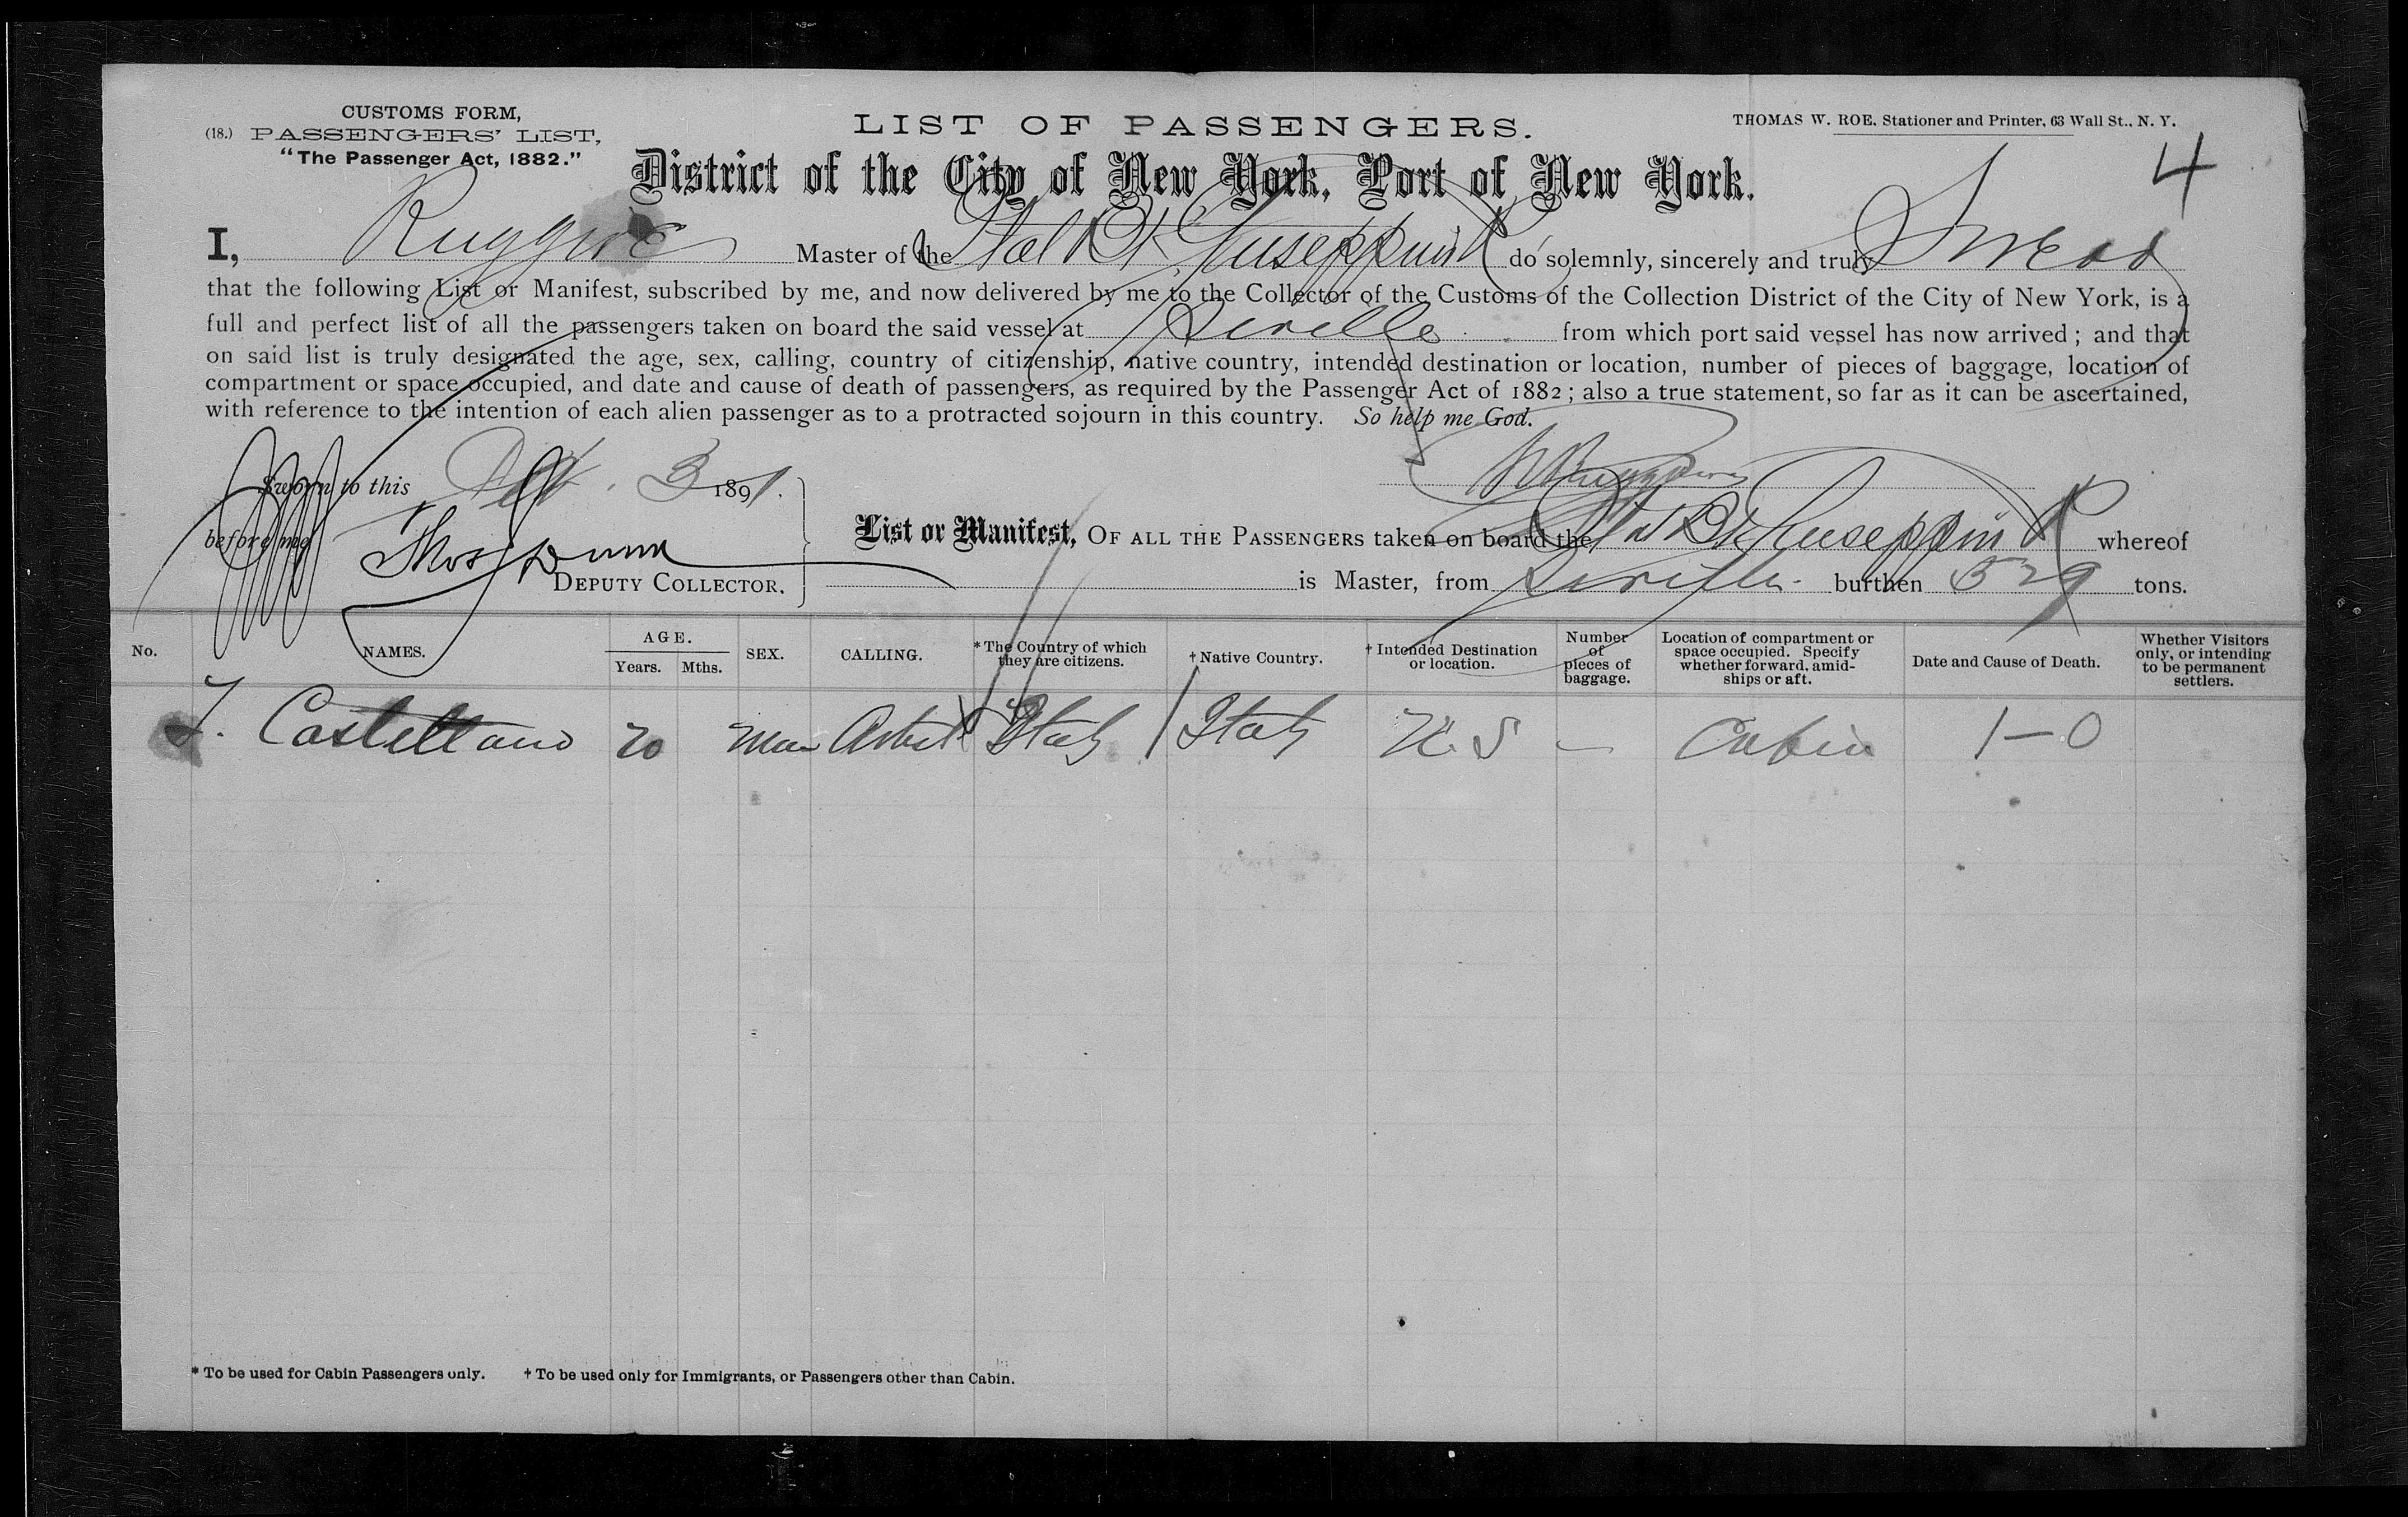 CUSTOMS FORM,
(18.) PASSENGERS' LIST,
"The Passenger Act, 1882."
LIST OF PASSENGERS.
THOMAS W. ROE, Stationer and Printer, 63 Wall St., N. Y.
4
District of the City of New York, Port of New York.
I, Ruggiero Master of the Ital Bk Guiseppina R do solemnly, sincerely and truly Swear
that the following List or Manifest, subscribed by me, and now delivered by me to the Collector of the Customs of the Collection District of the City of New York, is a
full and perfect list of all the passengers taken on board the said vessel at Seville from which port said vessel has now arrived; and that
on said list is truly designated the age, sex, calling, country of citizenship, native country, intended destination or location, number of pieces of baggage, location of
compartment or space occupied, and date and cause of death of passengers, as required by the Passenger Act of 1882; also a true statement, so far as it can be ascertained,
with reference to the intention of each alien passenger as to a protracted sojourn in this country. So help me God.
Sworn to this 3 1891.
before me Thos Dunn
DEPUTY COLLECTOR.
List or Manifest, OF ALL THE PASSENGERS taken on board the Ital Bk Guiseppina R whereof
is Master, from Seville burthen 529 tons.
No. NAMES. AGE. Years. Mths. SEX. CALLING. * The Country of which they are citizens. † Native Country. † Intended Destination or location. Number of pieces of baggage. Location of compartment or space occupied. Specify whether forward, amid-ships or aft. Date and Cause of Death. Whether Visitors only, or intending to be permanent settlers.
F. Castellano 20 Man Artist Italy Italy U.S — Cabin 1—0
* To be used for Cabin Passengers only. † To be used only for Immigrants, or Passengers other than Cabin.